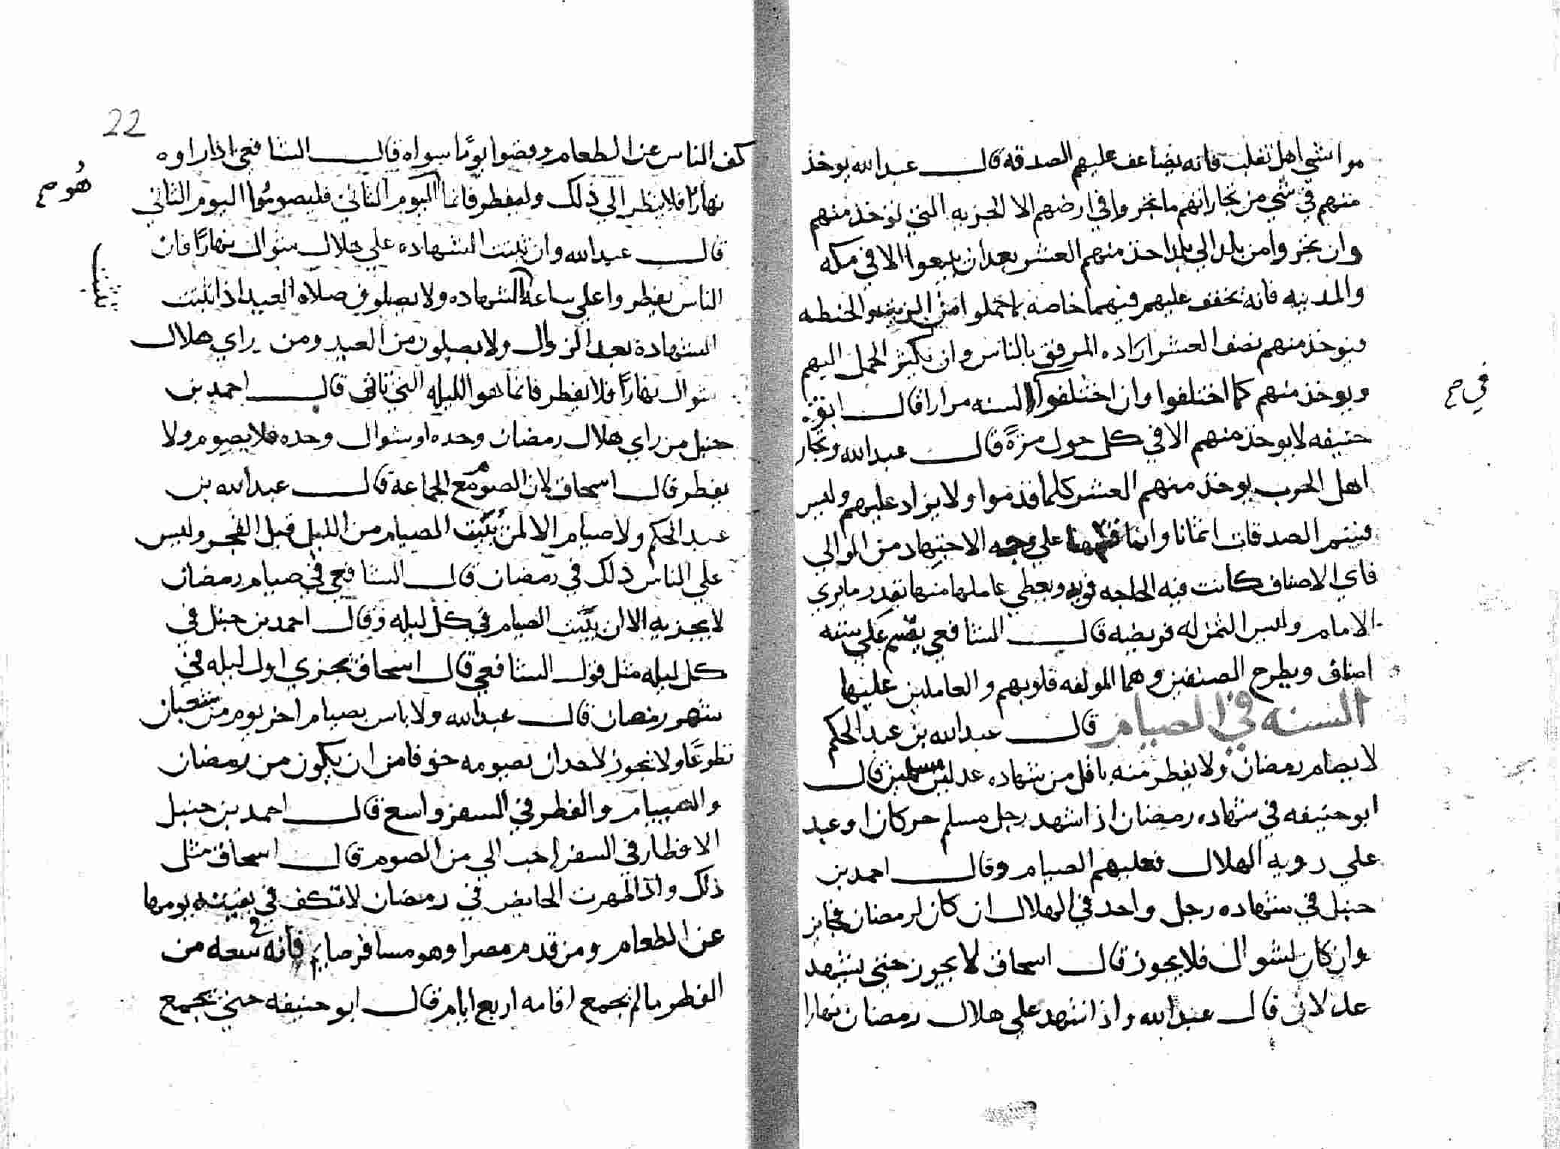 مواشي اهل تغلب فانه يضاعف عليهم الصدقه قال عبد الله يوخذ
منهم في شي من تجاراتهم ما تجروا في ارضهم الا الجزيه التي توخذ منهم
وان تجروا من بلد الي بلد اخذ منهم العشر بعد ان يبيعوا الا في مكه
والمدينه فانه يخفف عليهم فيهما خاصه ما حملوا من الزيت والحنطه
فيوخذ منهم نصف العشر اراده المرفق بالناس وان يكثر الحمل اليهم
ويوخذ منهم كما اختلفوا وان اختلفوا السنه مرارا قال ابو
في ح
حنيفه لا يوخذ منهم الا في كل حول مرة قال عبد الله وتجار
اهل الحرب يوخذ منهم العشر كلما قدموا ولا يزاد عليهم وليس
قسم الصدقات اثمانا وانما قسمها علي وجه الاجتهاد من الوالي
فاي الاصناف كانت فيه الحاجه ويعطي عاملها منها بقدر ما يري
الامام وليس الثمن له فريضه قال الشافعي يقسم علي سته
اصناف ويطرح الصنفين وهما المولفه قلوبهم والعاملين عليها
السنه في الصيام قال عبد الله بن عبد الحكم
لا يصام رمضان ولا يفطر منه باقل من شهاده عدلين مسلمين قال
ابو حنيفه في شهاده رمضان اذا شهد رجل مسلم حر كان او عبد
علي رويه الهلال فعليهم الصيام وقال احمد بن
حنبل في شهاده رجل واحد في الهلال ان كان لرمضان فجايز
وان كان لشوال فلا يجوز قال اسحاق لا يجوز حتي يشهد
عدلان قال عبد الله واذا شهد علي هلال رمضان نهارا
22
كف الناس عن الطعام وقضوا يوما سواه قال الشافعي اذا راوه
نهارا فلا ينظر الي ذلك وليفطر فانما اليوم الثاني فليصوموا اليوم الثاني
هوم ح
قال عبد الله وان ثبتت الشهاده علي هلال شوال نهارا فان
الناس يفطروا علي ساعة الشهاده ولا يصلون صلاه العيد اذا ثبتت
الشهادة بعد الزوال ولا يصلون من العيد ومن راي هلال
شوال نهارا فلا يفطر فانما هو الليله التي تاتي قال احمد بن
حنبل من راي هلال رمضان وحده او شوال وحده فلا يصوم ولا
يفطر قال اسحاق لان الصوم مع الجماعه قال عبد الله بن
عبد الحكم ولا صيام الا لمن يبيت الصيام من الليل قبل الفجر وليس
علي الناس ذلك في رمضان قال الشافعي في صيام رمضان
لا يجزيه الا ان يبيت الصيام في كل ليله وقال احمد بن حنبل في
كل ليله مثل قول الشافعي قال اسحاق يجزي اول ليله في
شهر رمضان قال عبد الله ولا باس بصيام اخر يوم من شعبان
تطوعا ولا يجوز لاحد ان يصومه خوفا من ان يكون من رمضان
والصيام والفطر في السفر واسع قال احمد بن حنبل
الافطار في السفر احب الي من الصوم قال اسحاق مثل
ذلك واذا طهرت الحايض في رمضان لا تكف في بقية يومها
عن الطعام ومن قدم مصرا وهو مسافر صايم فانه في سعه من
الفطر ما لم يجمع اقامه اربع ايام قال ابو حنيفه حتي يجمع